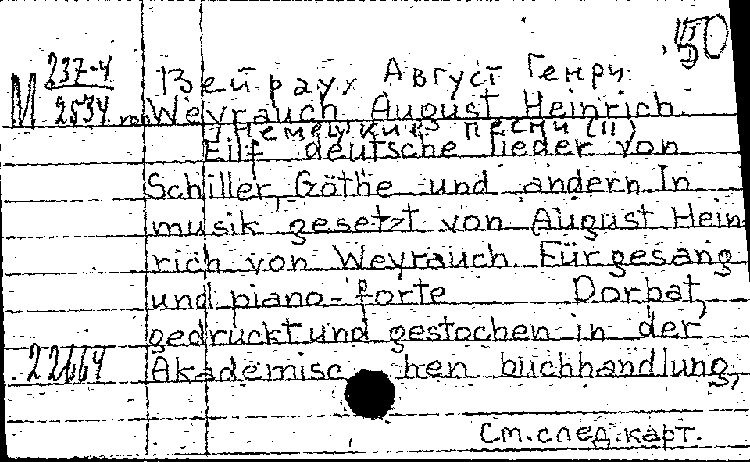 50
М 237-4
2534
Вейраух Август Генри
Weyrauch August Heinrich
Немецкие песни (11)
Eilf deutsche lieder von
Schiller, Göthe und andern. In
musik gesetzt von August Hein
rich von Weyrauch. Für gesang
und piano-forte Dorpat,
gedruckt und gestochen in der
22664 Akademischen buchhandlung,
См.след.карт.